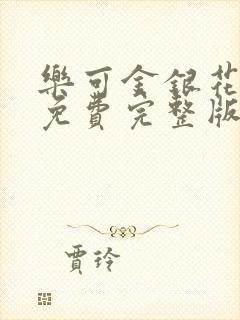 樂可金銀花
免費完整版
賈玲